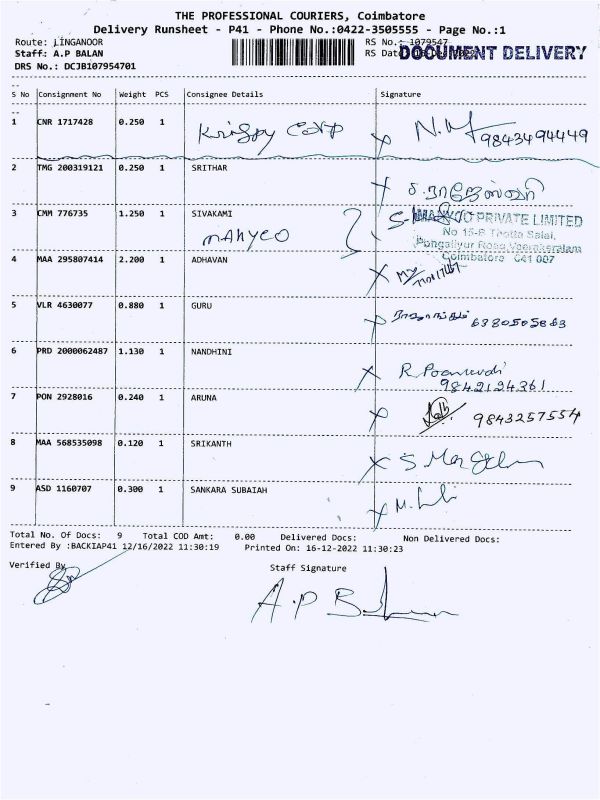 THE PROFESSIONAL COURIERS, Coimbatore
Delivery Runsheet - P41 - Phone No.:0422-3505555 - Page No.:1
Route: LINGANOOR
RS No.: 1079547
Staff: A.P BALAN
RS Dat
DOCUMENT DELIVERY
DRS No.: DCJB107954701
S No Consignment No Weight PCS Consignee Details Signature
1 CNR 1717428 0.250 1 Krispy Corp 9843494449
2 TMG 200319121 0.250 1 SRITHAR
3 CMM 776735 1.250 1 SIVAKAMI
PRIVATE LIMITED
MAHYCO
No 15-B Thotta Salai,
Pongaliyur Road, Veerakeralam
4 MAA 295807414 2.200 1 ADHAVAN
Coimbatore 641 007
5 VLR 4630077 0.880 1 GURU 6380505863
6 PRD 2000062487 1.130 1 NANDHINI
9842124361
7 PON 2928016 0.240 1 ARUNA 9843257554
8 MAA 568535098 0.120 1 SRIKANTH
9 ASD 1160707 0.300 1 SANKARA SUBAIAH
Total No. Of Docs: 9 Total COD Amt: 0.00 Delivered Docs: Non Delivered Docs:
Entered By :BACKIAP41 12/16/2022 11:30:19 Printed On: 16-12-2022 11:30:23
Verified By
Staff Signature
A.P